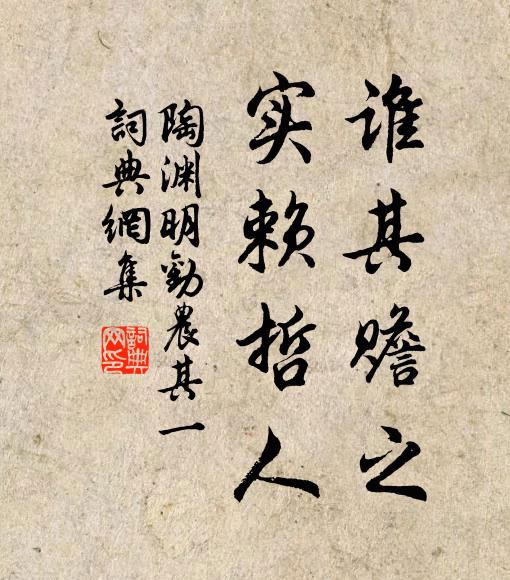 谁其赡之
实赖哲人
陶渊明勸農其一
詞典網集
詞典網印